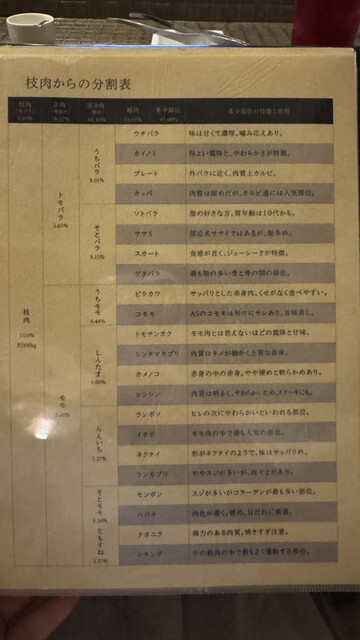 枝肉からの分割表
枝肉 正肉 部分肉 精肉 希少部位 希少部位の特徴と説明
枝肉
100%
約500kg
トモバラ
モモ
うちバラ
9.01%
そとバラ
9.15%
うちモモ
しんたま
6.00%
らんいち
そとモモ
ともすね
ウチバラ 味は甘くて濃厚。噛み応えあり。
カイノミ 程よい霜降と、やわらかさが特徴。
ブレート 外バラに近く、肉質上カルビ。
カッパ 肉質は固めだが、カルビ通には人気部位。
ソトバラ 脂の好きな方。胃年齢は10代かも。
ササミ 部位名ササミではあるが、脂多め。
スカート 食感が良く、ジューシーさが特徴。
ゲタバラ 最も脂の多い骨と骨の間の部位。
ヒラカワ サッパリとした赤身肉。くせがなく食べやすい。
コモモ A5のコモモは別格にサシあり。旨味良し。
トモサンカク モモ肉とは思えないほどの霜降と甘味。
シンタマカブリ 肉質はキメが細かく上質な赤身。
カメノコ 赤身の中の赤身。やや硬めと軟らかめあり。
シンシン 肉質は明るく、やわらかいため、ステーキにも。
ランボソ ヒレの次にやわらかいといわれる部位。
イチボ モモ肉の中で最も人気の部位。
ネクタイ 形がネクタイのようで、味はサッパリめ。
ランカブリ ややスジが多いが、肉々さがあり。
センボン スジが多いがコラーゲンが最も多い部位。
ハバキ 肉色が濃く、硬め。甘だれに最適。
ナカニク 弾力のある肉質。焼きすぎ注意。
シキンボ 牛の枝肉の中で最もよく運動する部位。